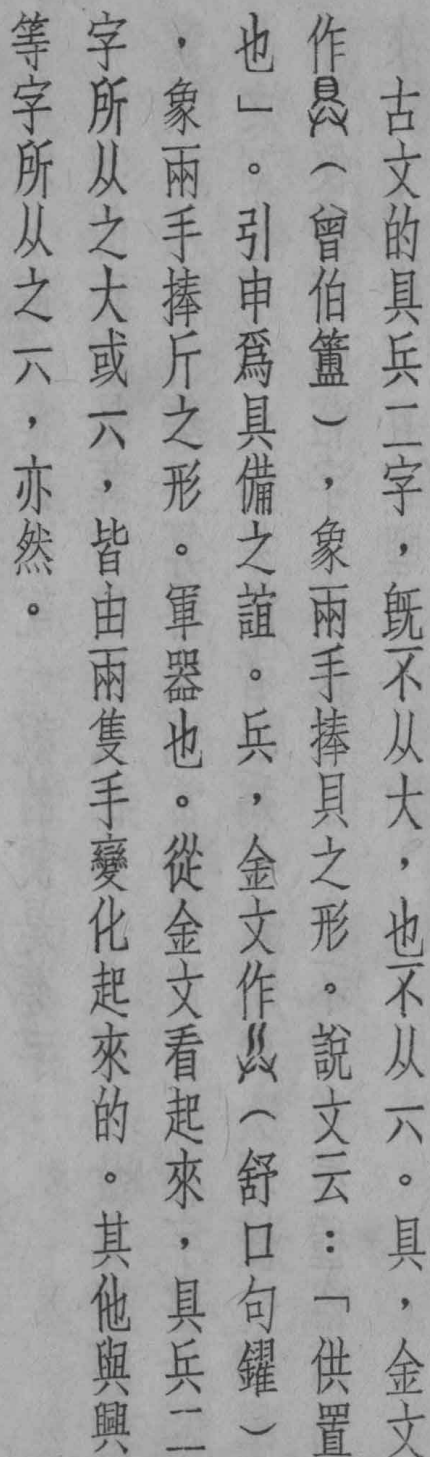 古文的具兵二字，既不从大，也不从六。具，金文
作（曾伯簠），象兩手捧貝之形。說文云：「供置
也」。引申爲具備之誼。兵，金文作（舒口句鑃）
，象兩手捧斤之形。軍器也。從金文看起來，具兵二
字所从之大或六，皆由兩隻手變化起來的。其他與興
等字所从之六，亦然。